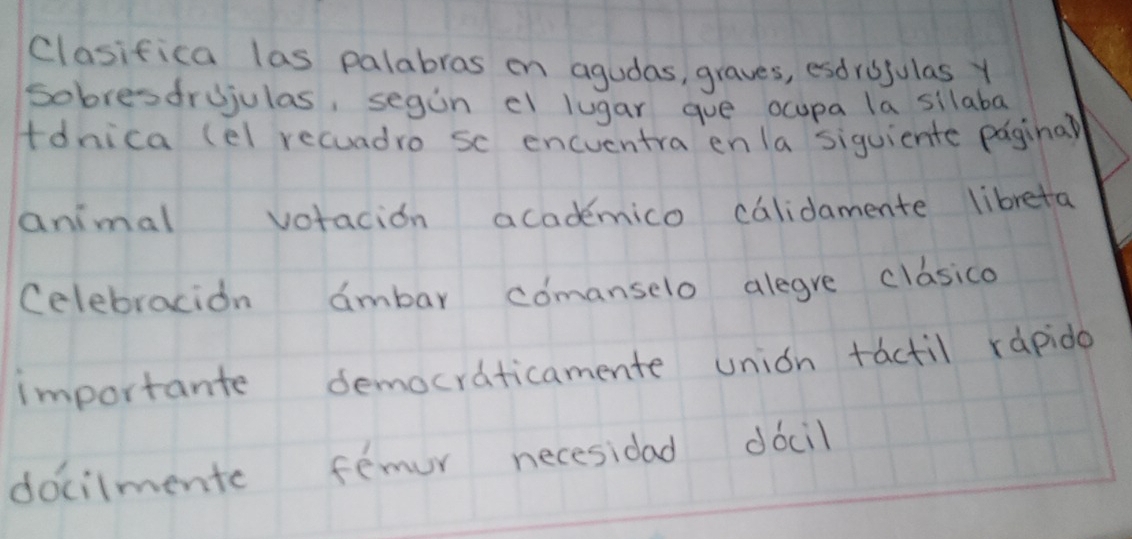 Clasifica las palabras en agudas, graves, esdrújulas y
sobresdrújulas, según el lugar que ocupa la silaba
tónica (el recuadro se encuentra en la siguiente página)
animal votación académico cálidamente libreta
Celebración ámbar cómanselo alegre clásico
importante democráticamente unión táctil rápido
dócilmente fémur necesidad dócil